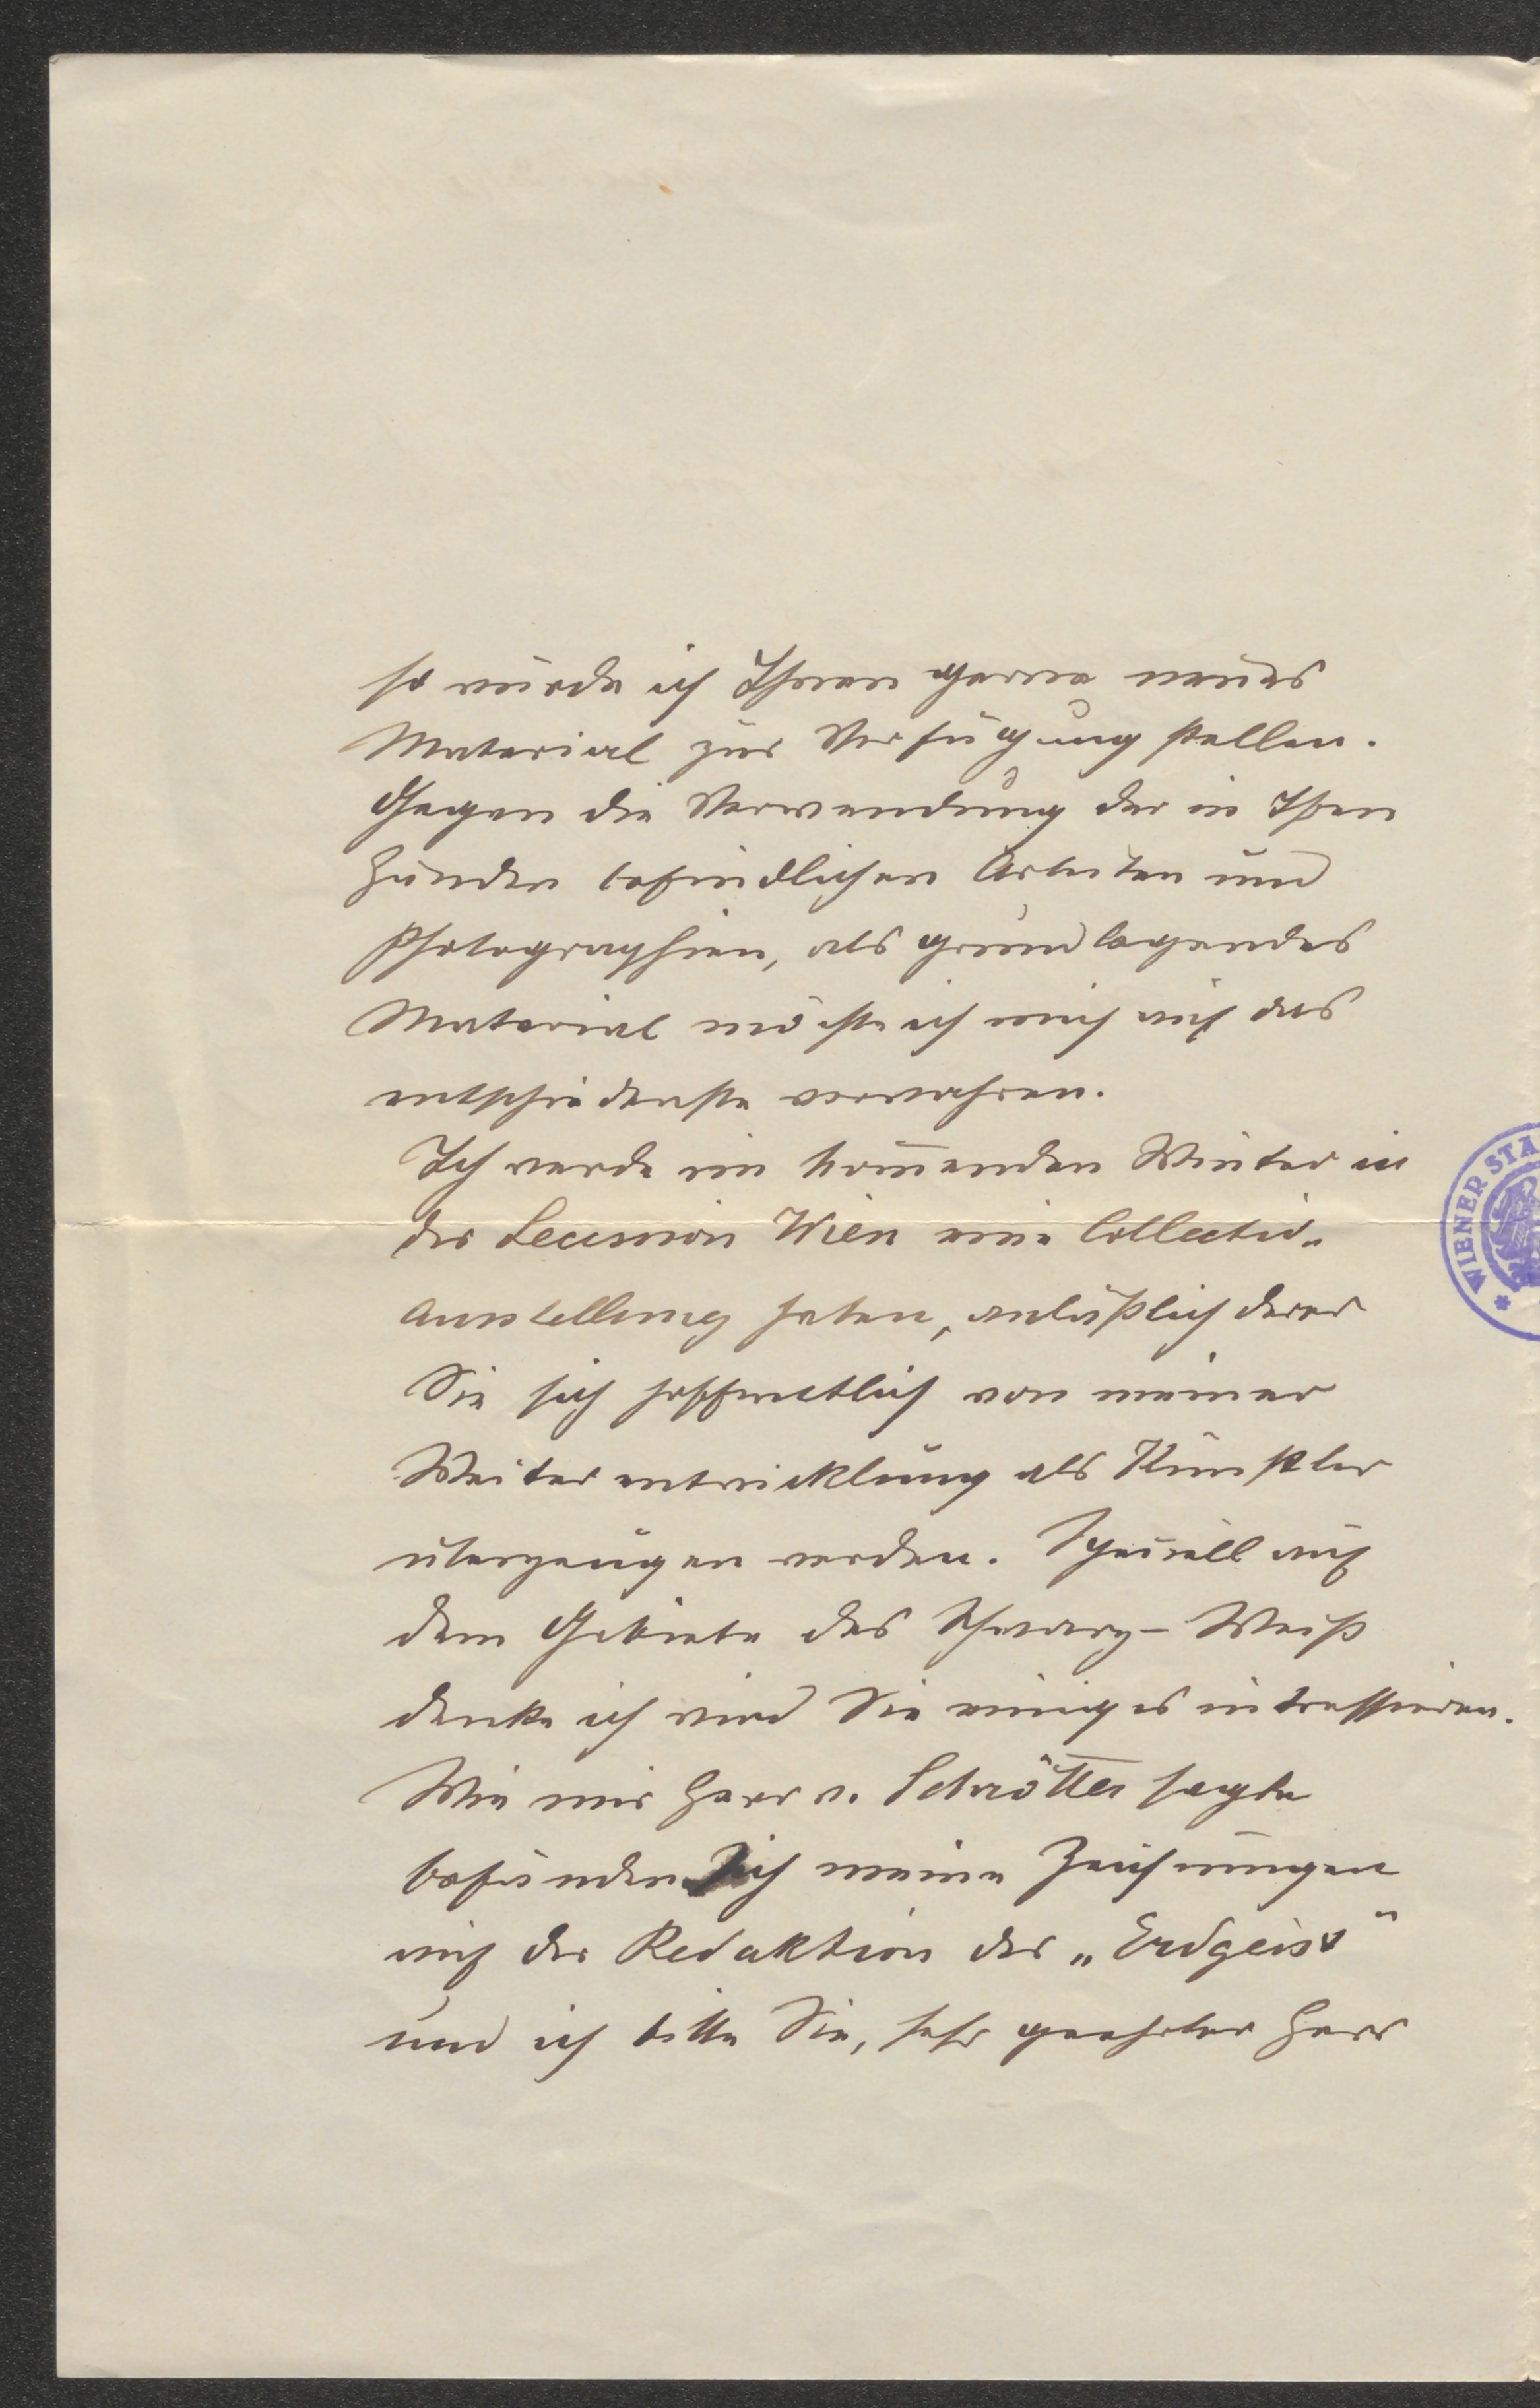 so würde ich Ihnen gerne neues
Material zur Verfügung stellen.
Gegen die Verwendung der in Ihren
Händen befindlichen Arbeiten und
Photographien, als grundlegendes
Material möchte ich mich auf das
entschiedenste verwahren.
Ich werde im kom̅enden Winter in
der Secession Wien eine Collectiv-
ausstellung haben, anläßlich derer
Sie sich hoffentlich von meiner
Weiterentwicklung als Künstler
überzeugen werden. Speciell auf
dem Gebiete des Schwarz-Weiß
denke ich wird Sie einiges intressieren.
Wie mir Herr v. Schrötter sagte
befinden sich meine Zeichnungen
auf der Redaktion des „Erdgeist"
und ich bitte Sie, sehr geehrter Herr
WIENER STA